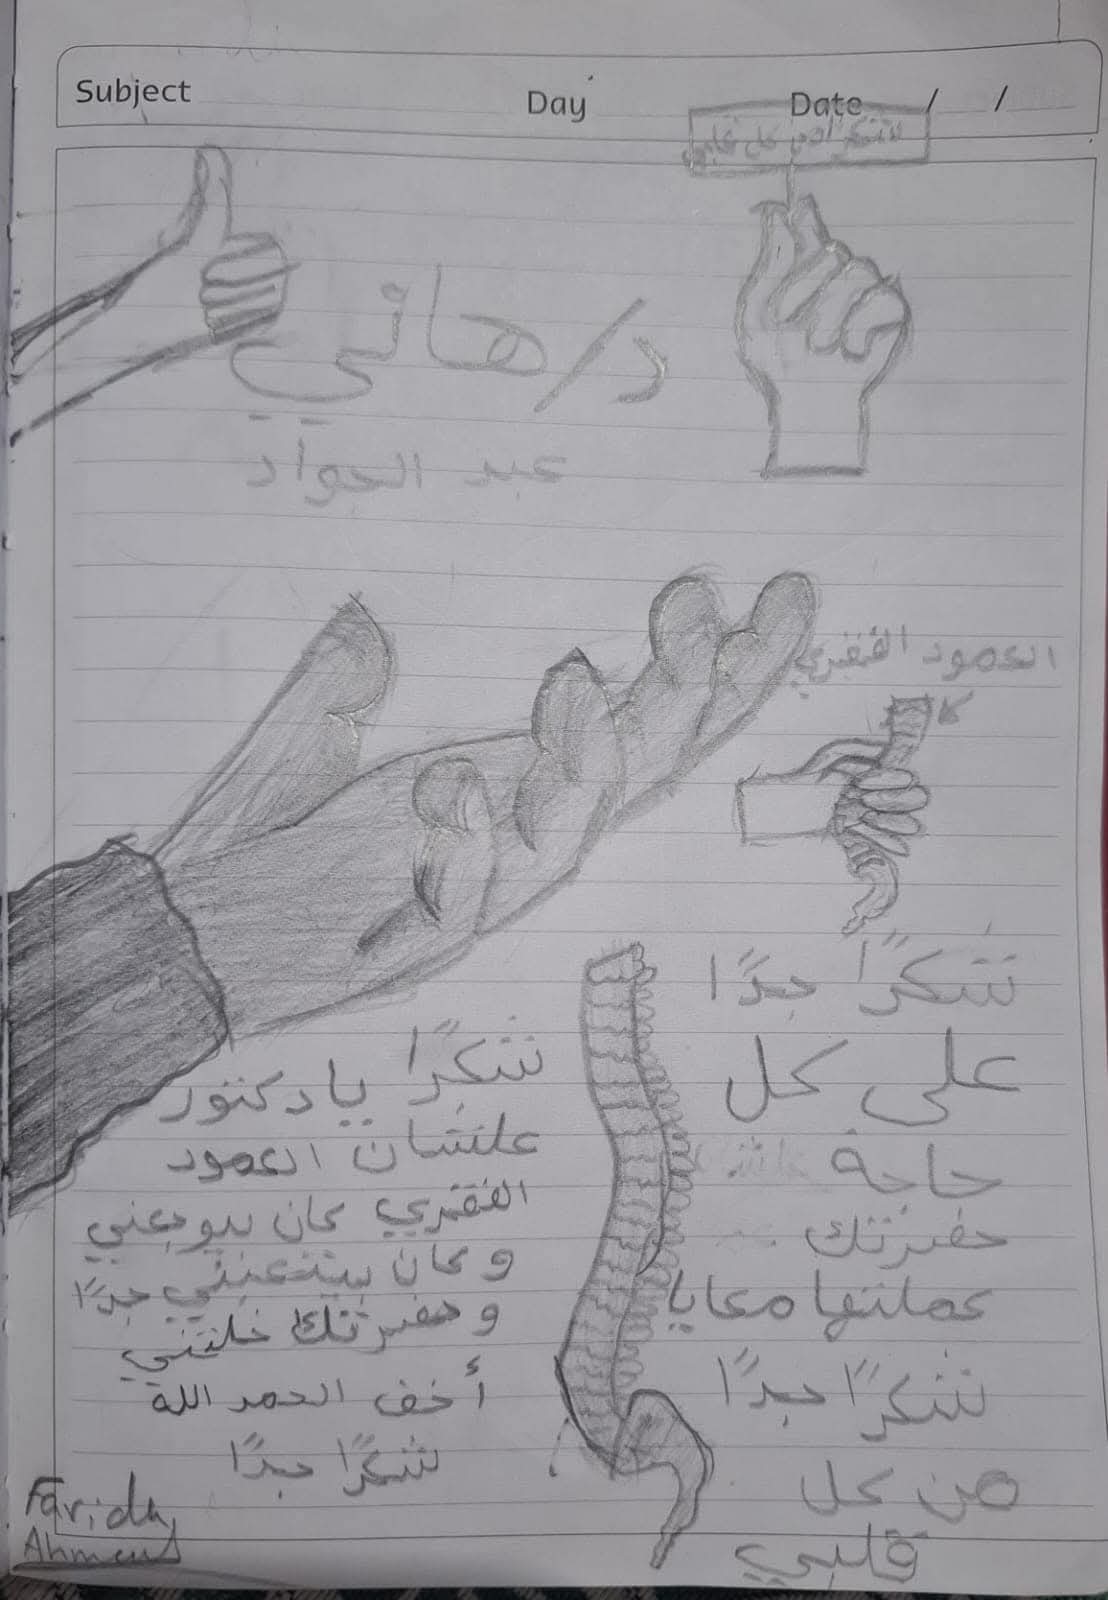 Subject
Day
Date / /
شكرًا من كل قلبي
د/هاني
عبد الجواد
العمود الفقري
شكرًا جدًا
على كل
حاجة
حضرتك
عملتها معايا
شكرًا جدًا
من كل
قلبي
شكرًا يا دكتور
علشان العمود
الفقري كان بيوجعني
و كان بيتعبني جدًا
و حضرتك خلتني
أخف الحمد الله
شكرًا جدًا
Farida
Ahmed